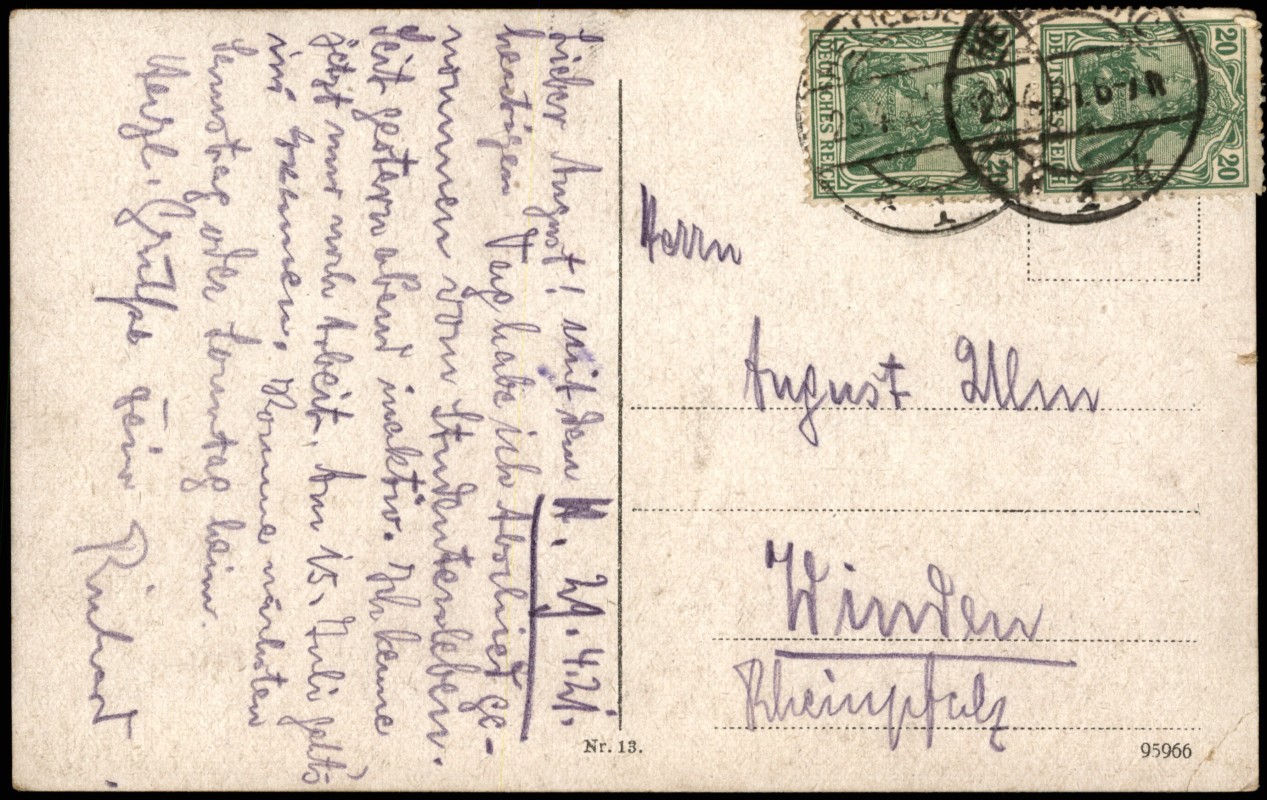 Lieber August! mit dem H. 29.4.21.
heutigen Tag habe ich Abschied ge-
nommen vom Studentenleben.
Seit gestern abend inaktiv. Ich kenne
jetzt nur noch Arbeit. Am 15. Juli geht's
ins Examen. Komme nächsten
Samstag oder Sonntag heim.
Herzl. Grüße Dein
Herrn
August
Winden
Rheinpfalz
Nr. 13.
95966
DEUTSCHES REICH
20
DEUTSCHES REICH
20 20